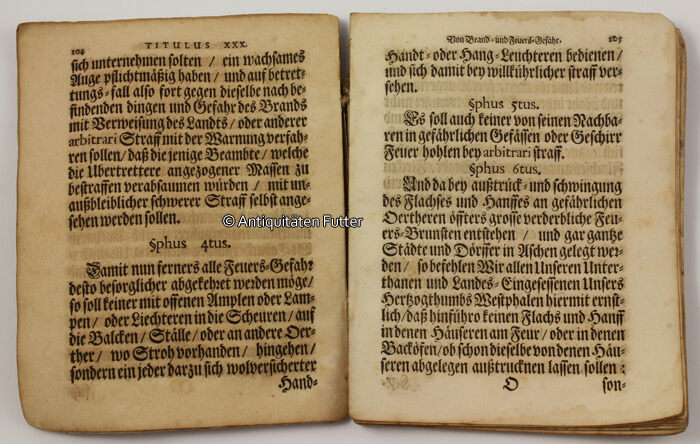 104 TITULUS XXX.
sich unternehmen solten / ein wachsames
Auge pflichtmäßig haben / und auf betret-
tungs-fall also fort gegen dieselbe nach be-
findenden dingen und Gefahr des Brands
mit Verweisung des Landts / oder anderer
arbitrari Straff mit der Warnung verfah-
ren sollen / daß die jenige Beambte / welche
die Ubertrettere angezogener Massen zu
bestraffen verabsaumen würden / mit un-
außbleiblicher schwerer Straff selbst ange-
sehen werden sollen.
§phus 4tus.
Damit nun ferners alle Feuers-Gefahr
desto besorglicher abgekehret werden möge /
so soll keiner mit offenen Amplen oder Lam-
pen / oder Liechteren in die Scheuren / auf
die Balcken / Ställe / oder an andere Oer-
ther / wo Stroh vorhanden / hingehen /
sondern ein jeder darzu sich wolversicherter
Hand-
Von Brand- und Feuers-Gefahr. 105
Handt- oder Hang-Leuchteren bedienen /
und sich damit bey willkührlicher straff ver-
sehen.
§phus 5tus.
Es soll auch keiner von seinen Nachba-
ren in gefährlichen Gefässen oder Geschirr
Feuer hohlen bey arbitrari straff.
§phus 6tus.
Und da bey außtrück- und schwingung
des Flachses und Hanffes an gefährlichen
Oertheren öffters grosse verderbliche Feu-
ers-Brunsten entstehen / und gar gantze
Städte und Dörffer in Aschen gelegt wer-
den / so befehlen Wir allen Unseren Unter-
thanen und Landes-Eingesessenen Unsers
Hertzogthumbs Westphalen hiermit ernst-
lich / daß hinführo keinen Flachs und Hanff
in denen Häuseren am Feur / oder in denen
Backöfen / ob schon dieselbe von denen Häu-
seren abgelegen außtrucknen lassen sollen :
O son-
© Antiquitäten Futter